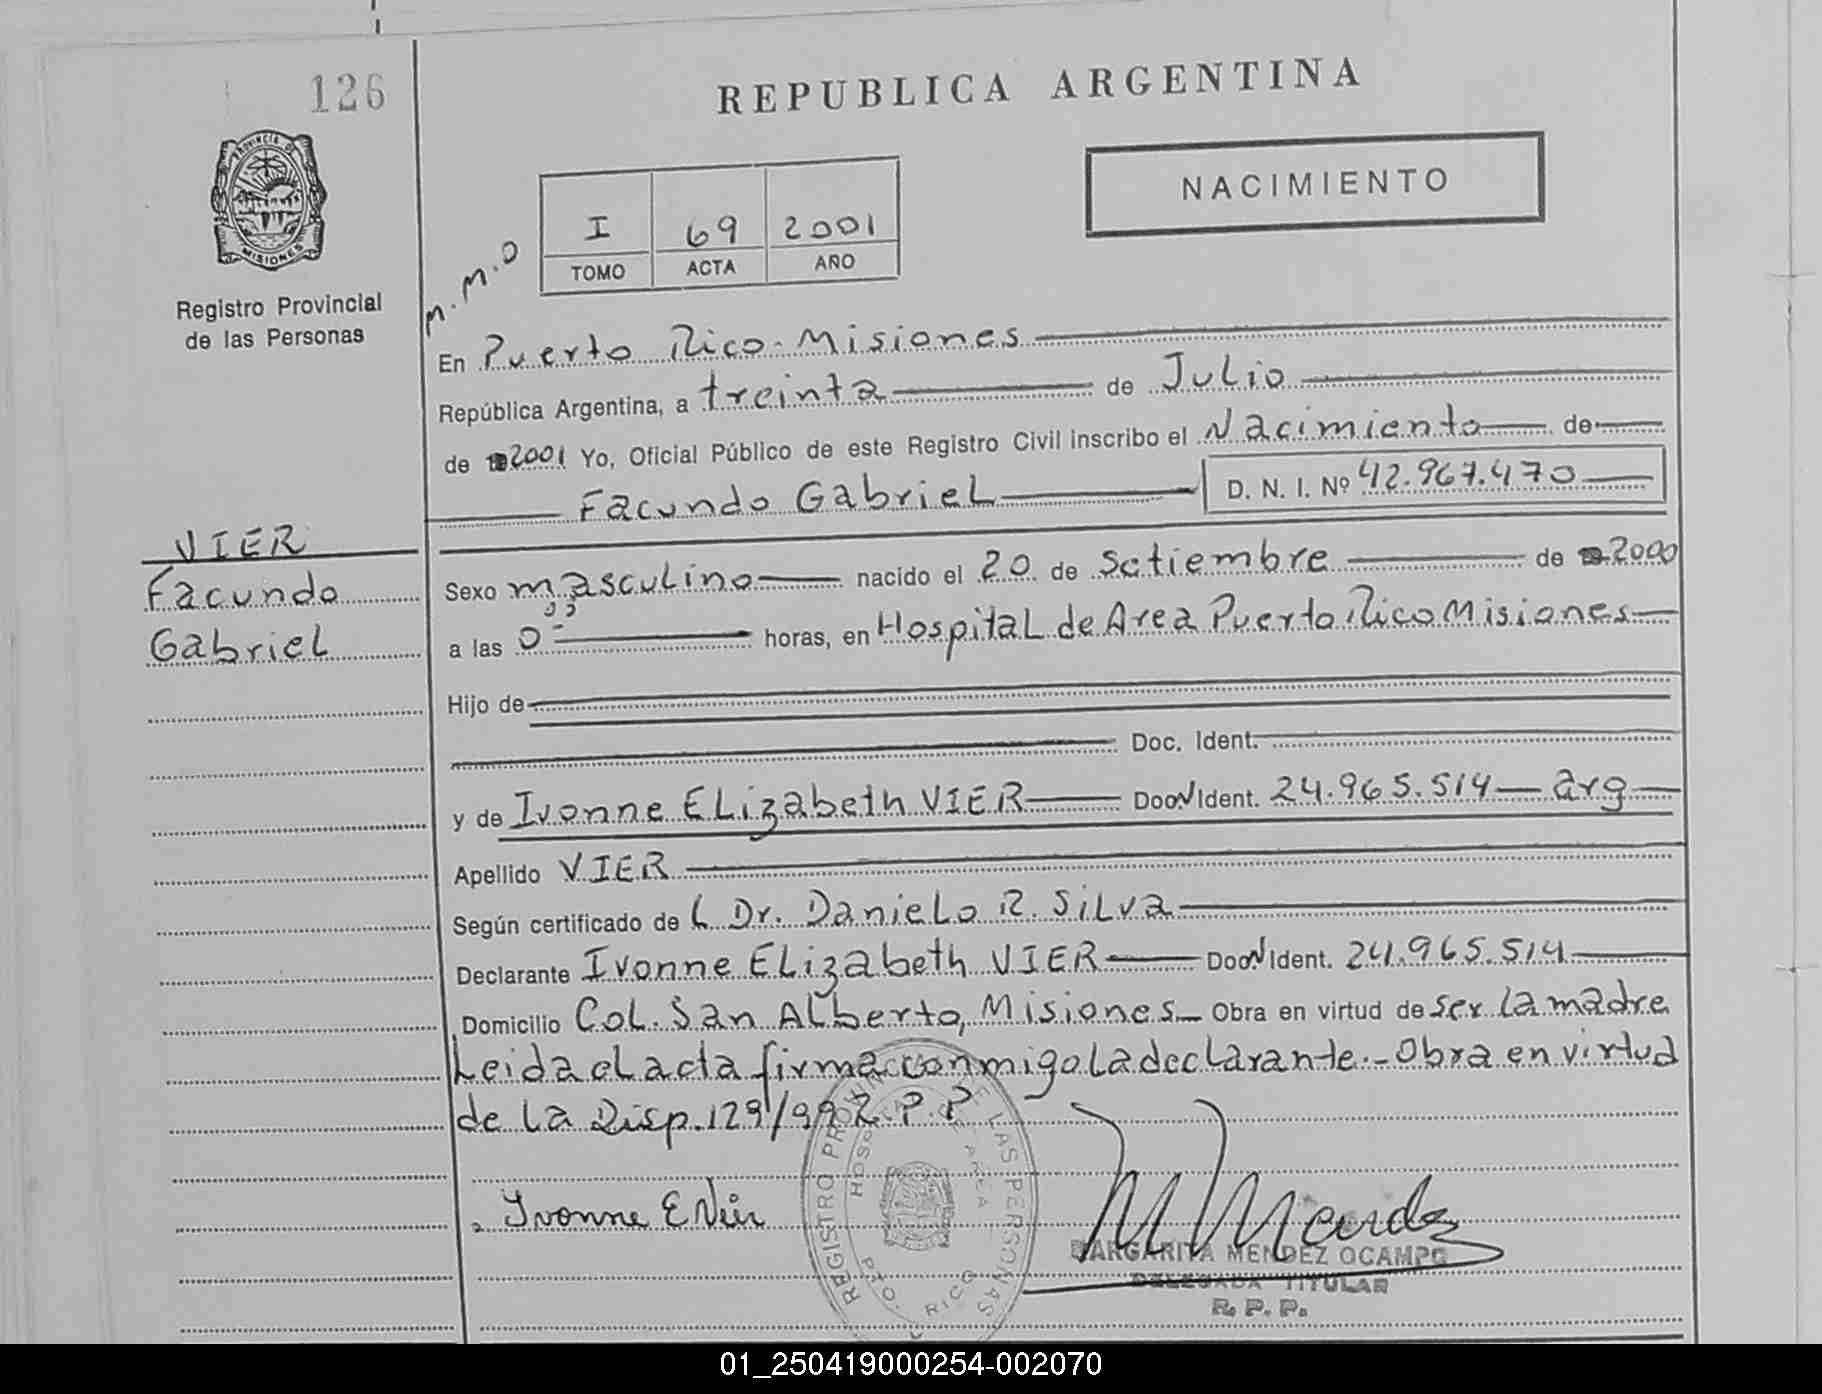 126
REPUBLICA ARGENTINA
PROVINCIA DE
MISIONES
NACIMIENTO
I 69 2001
TOMO ACTA AÑO
Registro Provincial
de las Personas
M.M.O
En Puerto Rico-Misiones
República Argentina, a treinta de Julio
de 2001 Yo, Oficial Público de este Registro Civil inscribo el Nacimiento de
Facundo Gabriel D. N. I. Nº 42.967.470
VIER
Facundo
Gabriel
Sexo masculino nacido el 20 de Setiembre de 2000
a las 0 horas, en Hospital de Area Puerto Rico Misiones
Hijo de
Doc. Ident.
y de Ivonne Elizabeth VIER Ident. 24.965.514 - arg
Apellido VIER
Según certificado de L Dr. Danielo R. Silva
Declarante Ivonne Elizabeth VIER Ident. 24.965.514
Domicilio Col. San Alberto, Misiones - Obra en virtud de ser la madre
Leida el acta firma conmigo la declarante.- Obra en virtud
de la Disp. 129/99 R.P.P
Ivonne E Vier
REGISTRO PROVINCIAL DE LAS PERSONAS
HOSPITAL DE AREA
PTO. RICO
MARGARITA MENDEZ OCAMPO
DELEGADA TITULAR
R. P. P.
01_250419000254-002070